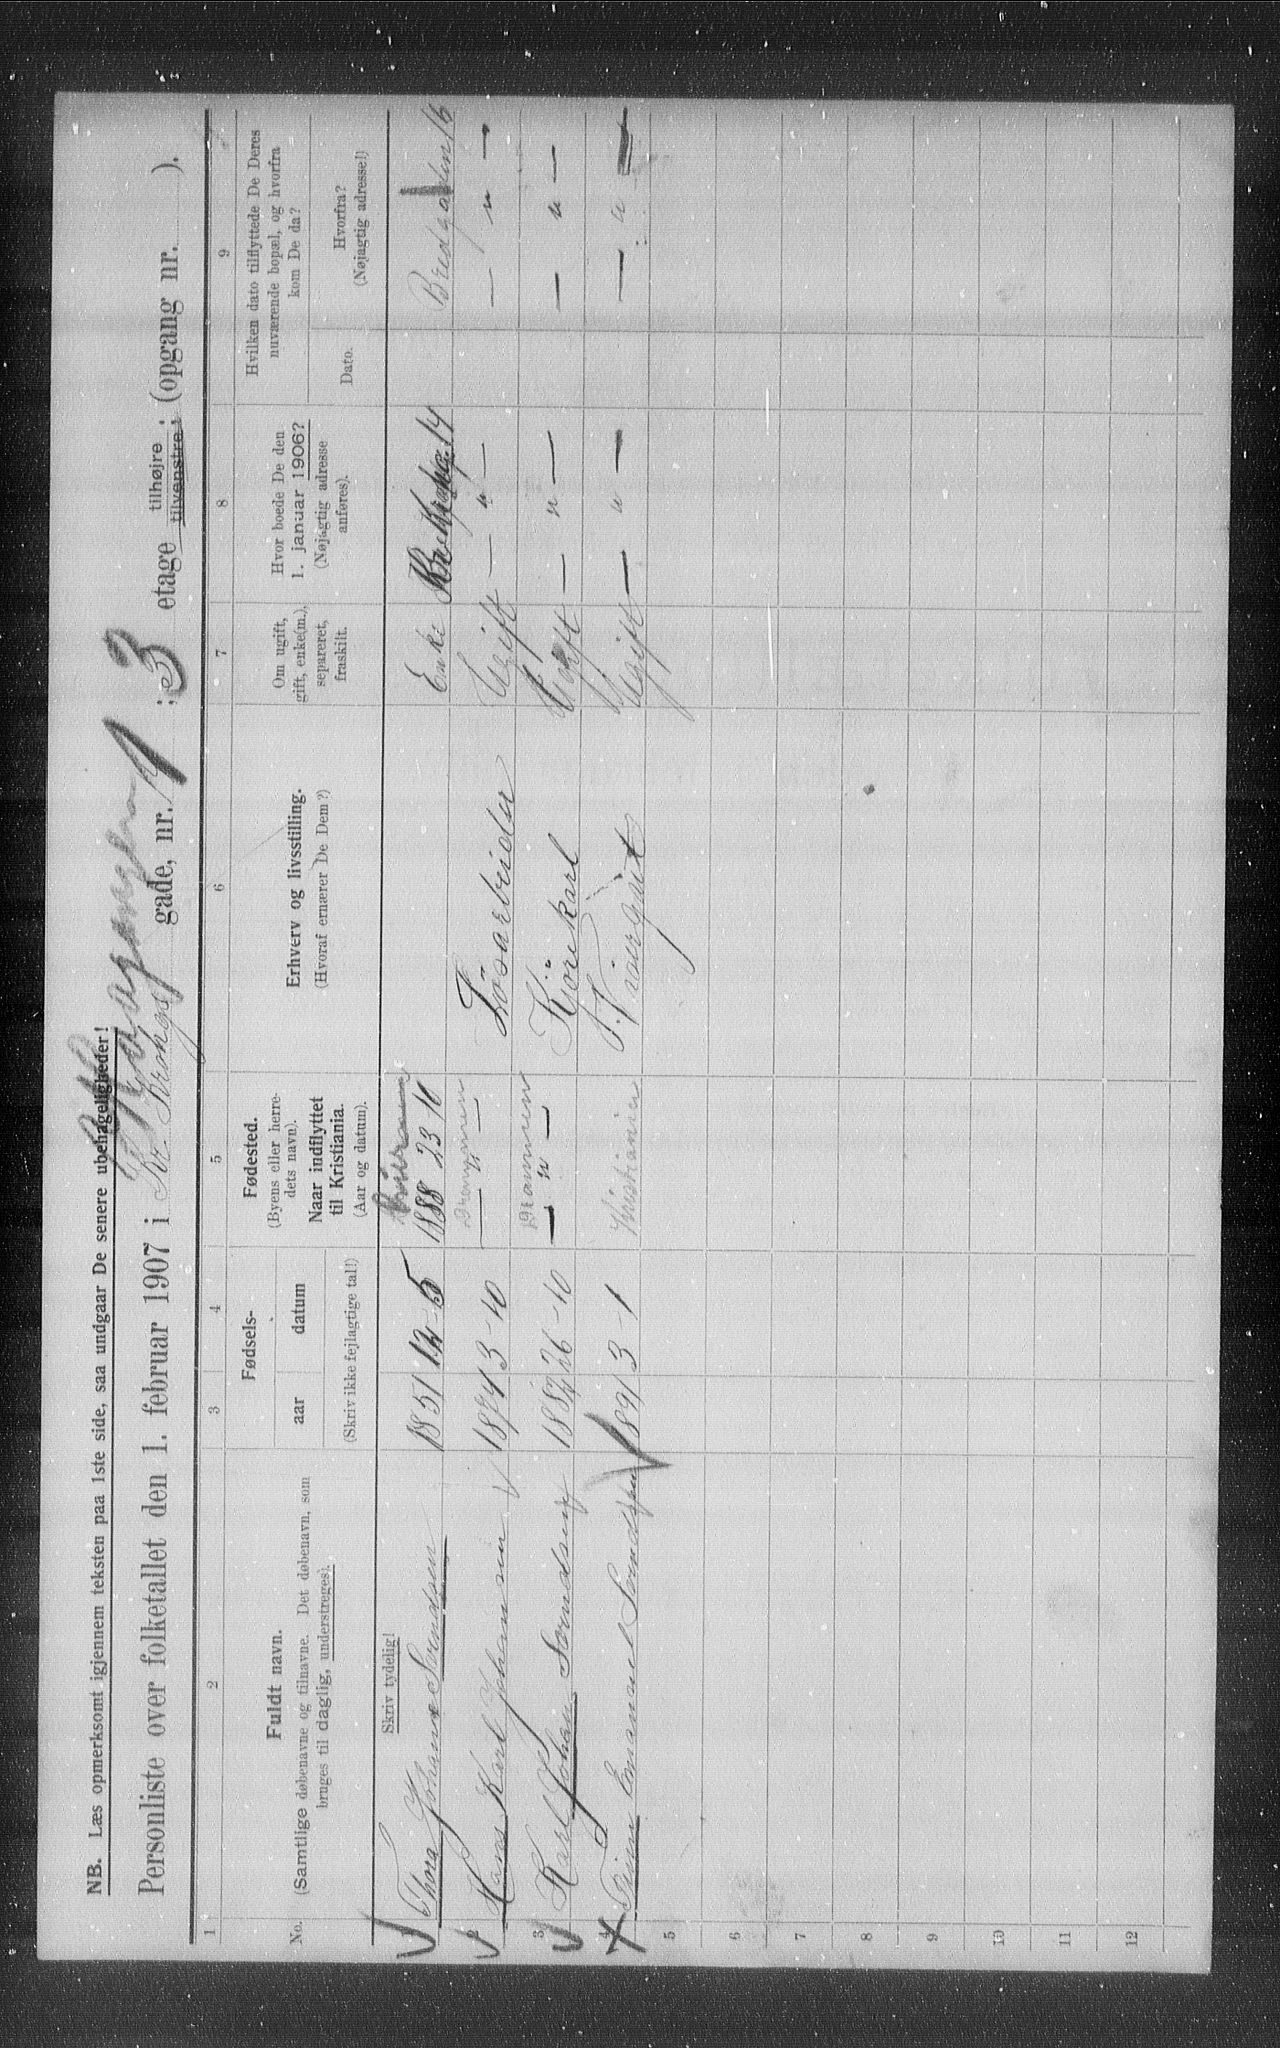 NB. Læs opmerksomt igjennem teksten paa 1ste side, saa undgaar De senere ubehageligheder!
Personliste over folketallet den 1. februar 1907 i Kr. Krohgs gade, nr. 1; 3 etage tilhøjre; tilvenstre; (opgang nr. ).
1 2 3 4 5 6 7 8 9
No.
Fuldt navn.
(Samtlige døbenavne og tilnavne. Det døbenavn, som
bruges til daglig, understreges).
Fødsels-
aar datum
(Skriv ikke fejlagtige tal!)
Fødested.
(Byens eller herre-
dets navn).
Naar indflyttet
til Kristiania.
(Aar og datum).
Erhverv og livsstilling.
(Hvoraf ernærer De Dem?)
Om ugift,
gift, enke(m.),
separeret,
fraskilt.
Hvor boede De den
1. januar 1906?
(Nøjagtig adresse
anføres).
Hvilken dato tilflyttede De Deres
nuværende bopæl, og hvorfra
kom De da?
Dato.
Hvorfra?
(Nøjagtig adresse!)
Skriv tydelig!
Thora Johanne Svendsen 1851 12-5 1888 23 10 Enke Bredgaden 16
2 Hans Karl Johansen 1874 3-10 Drammen — " — Lösarbeider Ugift — " — — " —
3 Karl Johan Svendsen 1882 26-10 Drammen — " — Kjörekarl Ugift — " — — " —
4 Finn Emanuel Svendsen 1891 3 1 Kristiania Visergut Ugift — " — — " —
5
6
7
8
9
10
11
12